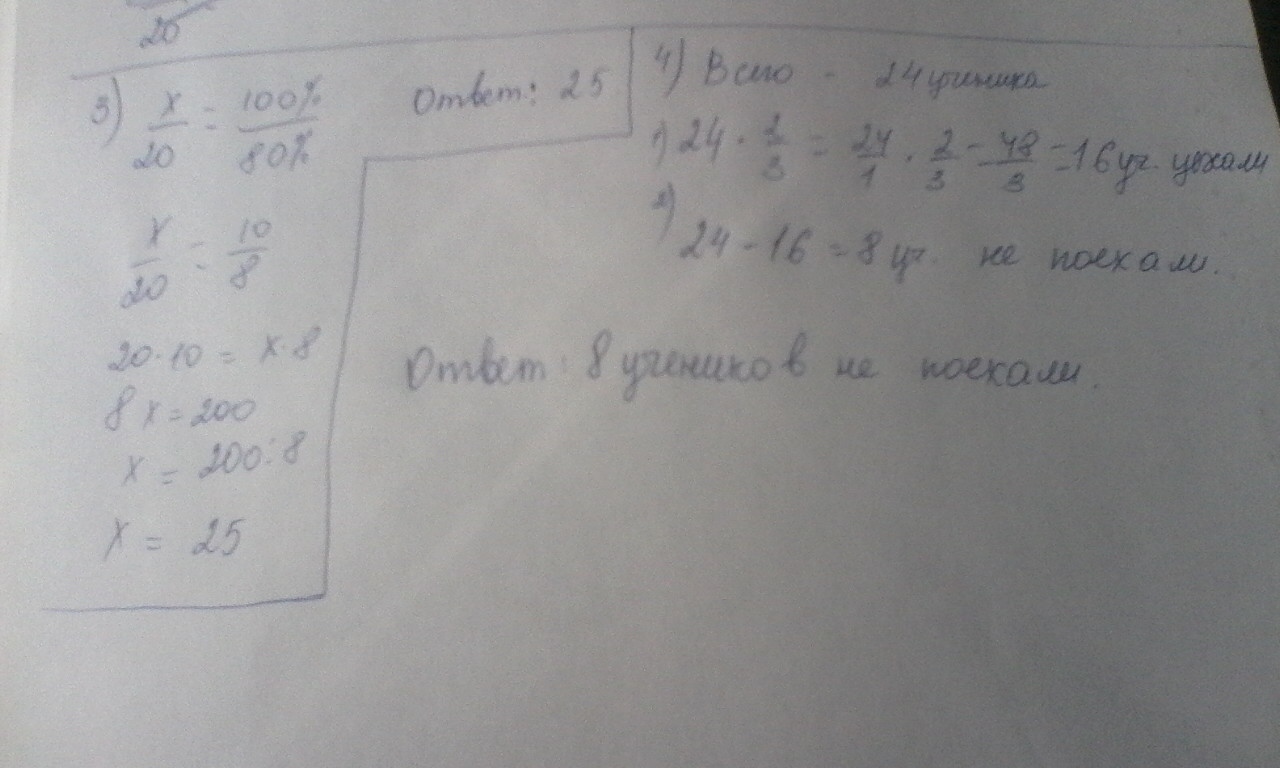 20
3) x/20 = 100%/80%
x/20 = 10/8
20·10 = x·8
8x = 200
x = 200:8
x = 25
Ответ: 25
4) Всего - 24 ученика
1) 24 · 2/3 = 24/1 · 2/3 = 48/3 = 16 уч. уехали
2) 24 - 16 = 8 уч. не поехали.
Ответ: 8 учеников не поехали.